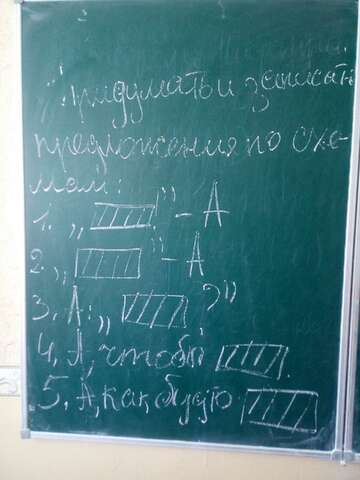 Придумать и записать
предложения по схе-
мам:
1. „ ” – А
2. „ ” – А
3. А: „ ?”
4. А, чтобы .
5. А, как будто